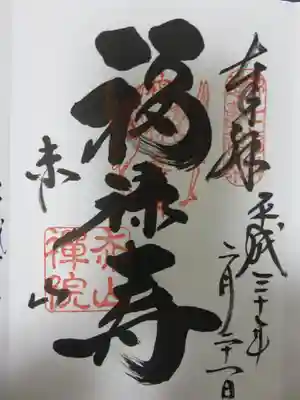 奉拝
平成三十年
六月二十一日
福禄寿
赤山
赤山
禅院